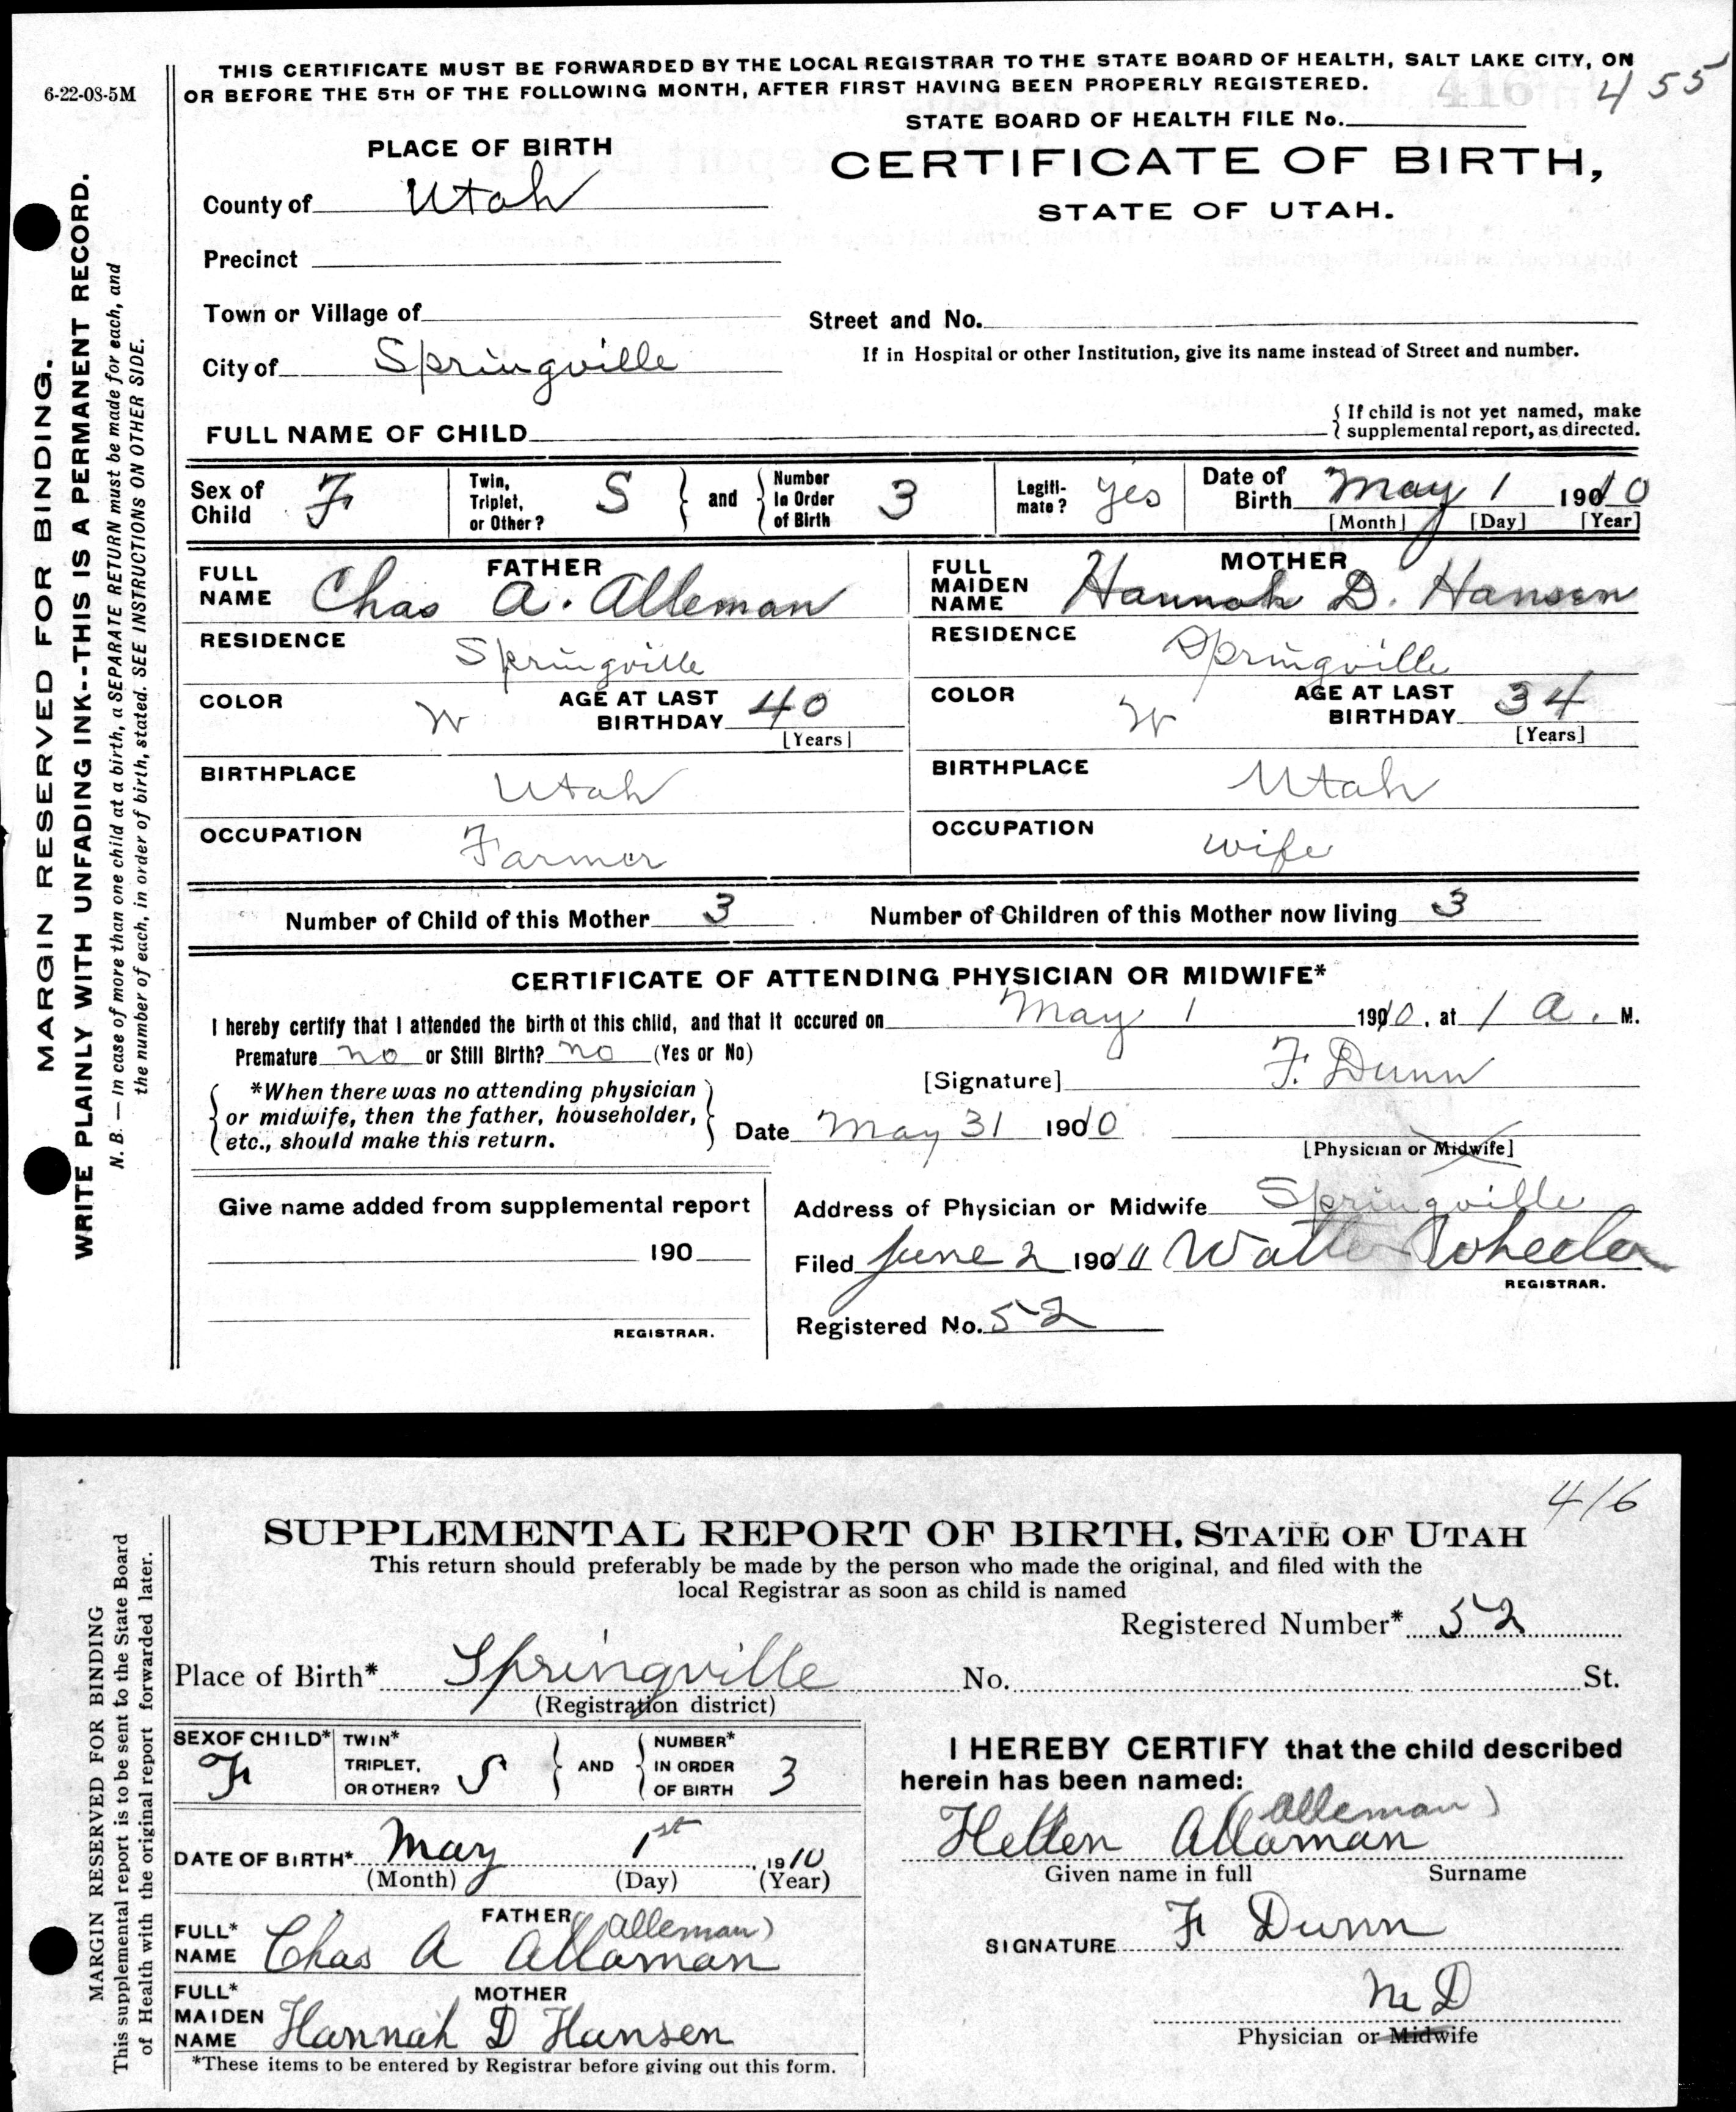 THIS CERTIFICATE MUST BE FORWARDED BY THE LOCAL REGISTRAR TO THE STATE BOARD OF HEALTH, SALT LAKE CITY, ON
OR BEFORE THE 5TH OF THE FOLLOWING MONTH, AFTER FIRST HAVING BEEN PROPERLY REGISTERED.
6-22-08-5M
416
455
STATE BOARD OF HEALTH FILE No.
PLACE OF BIRTH
CERTIFICATE OF BIRTH,
STATE OF UTAH.
County of Utah
Precinct
Town or Village of
Street and No.
City of Springville
If in Hospital or other Institution, give its name instead of Street and number.
FULL NAME OF CHILD
{ If child is not yet named, make
supplemental report, as directed.
Sex of Child F
Twin, Triplet, or Other? S } and { Number In Order of Birth 3
Legiti-mate? yes
Date of Birth May 1 1910
[Month] [Day] [Year]
FATHER
FULL NAME Chas A. Alleman
MOTHER
FULL MAIDEN NAME Hannah D. Hansen
RESIDENCE Springville
RESIDENCE Springville
COLOR W AGE AT LAST BIRTHDAY 40 [Years]
COLOR W AGE AT LAST BIRTHDAY 34 [Years]
BIRTHPLACE Utah
BIRTHPLACE Utah
OCCUPATION Farmer
OCCUPATION wife
Number of Child of this Mother 3 Number of Children of this Mother now living 3
CERTIFICATE OF ATTENDING PHYSICIAN OR MIDWIFE*
I hereby certify that I attended the birth of this child, and that it occured on May 1 1910, at 1 a. M.
Premature no or Still Birth? no (Yes or No)
{ *When there was no attending physician
or midwife, then the father, householder,
etc., should make this return. }
[Signature] F. Dunn
Date May 31 1910
[Physician or Midwife]
Give name added from supplemental report
190
REGISTRAR.
Address of Physician or Midwife Springville
Filed June 2 190 Walter Wheeler
REGISTRAR.
Registered No. 52
MARGIN RESERVED FOR BINDING.
WRITE PLAINLY WITH UNFADING INK--THIS IS A PERMANENT RECORD.
N. B. — In case of more than one child at a birth, a SEPARATE RETURN must be made for each, and
the number of each, in order of birth, stated. SEE INSTRUCTIONS ON OTHER SIDE.
416
SUPPLEMENTAL REPORT OF BIRTH, STATE OF UTAH
This return should preferably be made by the person who made the original, and filed with the
local Registrar as soon as child is named
Registered Number* 52
Place of Birth* Springville No. St.
(Registration district)
SEX OF CHILD* F
TWIN* TRIPLET, OR OTHER? S } AND { NUMBER* IN ORDER OF BIRTH 3
DATE OF BIRTH* May 1st, 1910
(Month) (Day) (Year)
FATHER (Alleman)
FULL* NAME Chas A Allaman
MOTHER
FULL* MAIDEN NAME Hannah D Hansen
*These items to be entered by Registrar before giving out this form.
I HEREBY CERTIFY that the child described
herein has been named:
(Alleman)
Hellen Allaman
Given name in full Surname
SIGNATURE F Dunn
M D
Physician or Midwife
MARGIN RESERVED FOR BINDING
This supplemental report is to be sent to the State Board
of Health with the original report forwarded later.